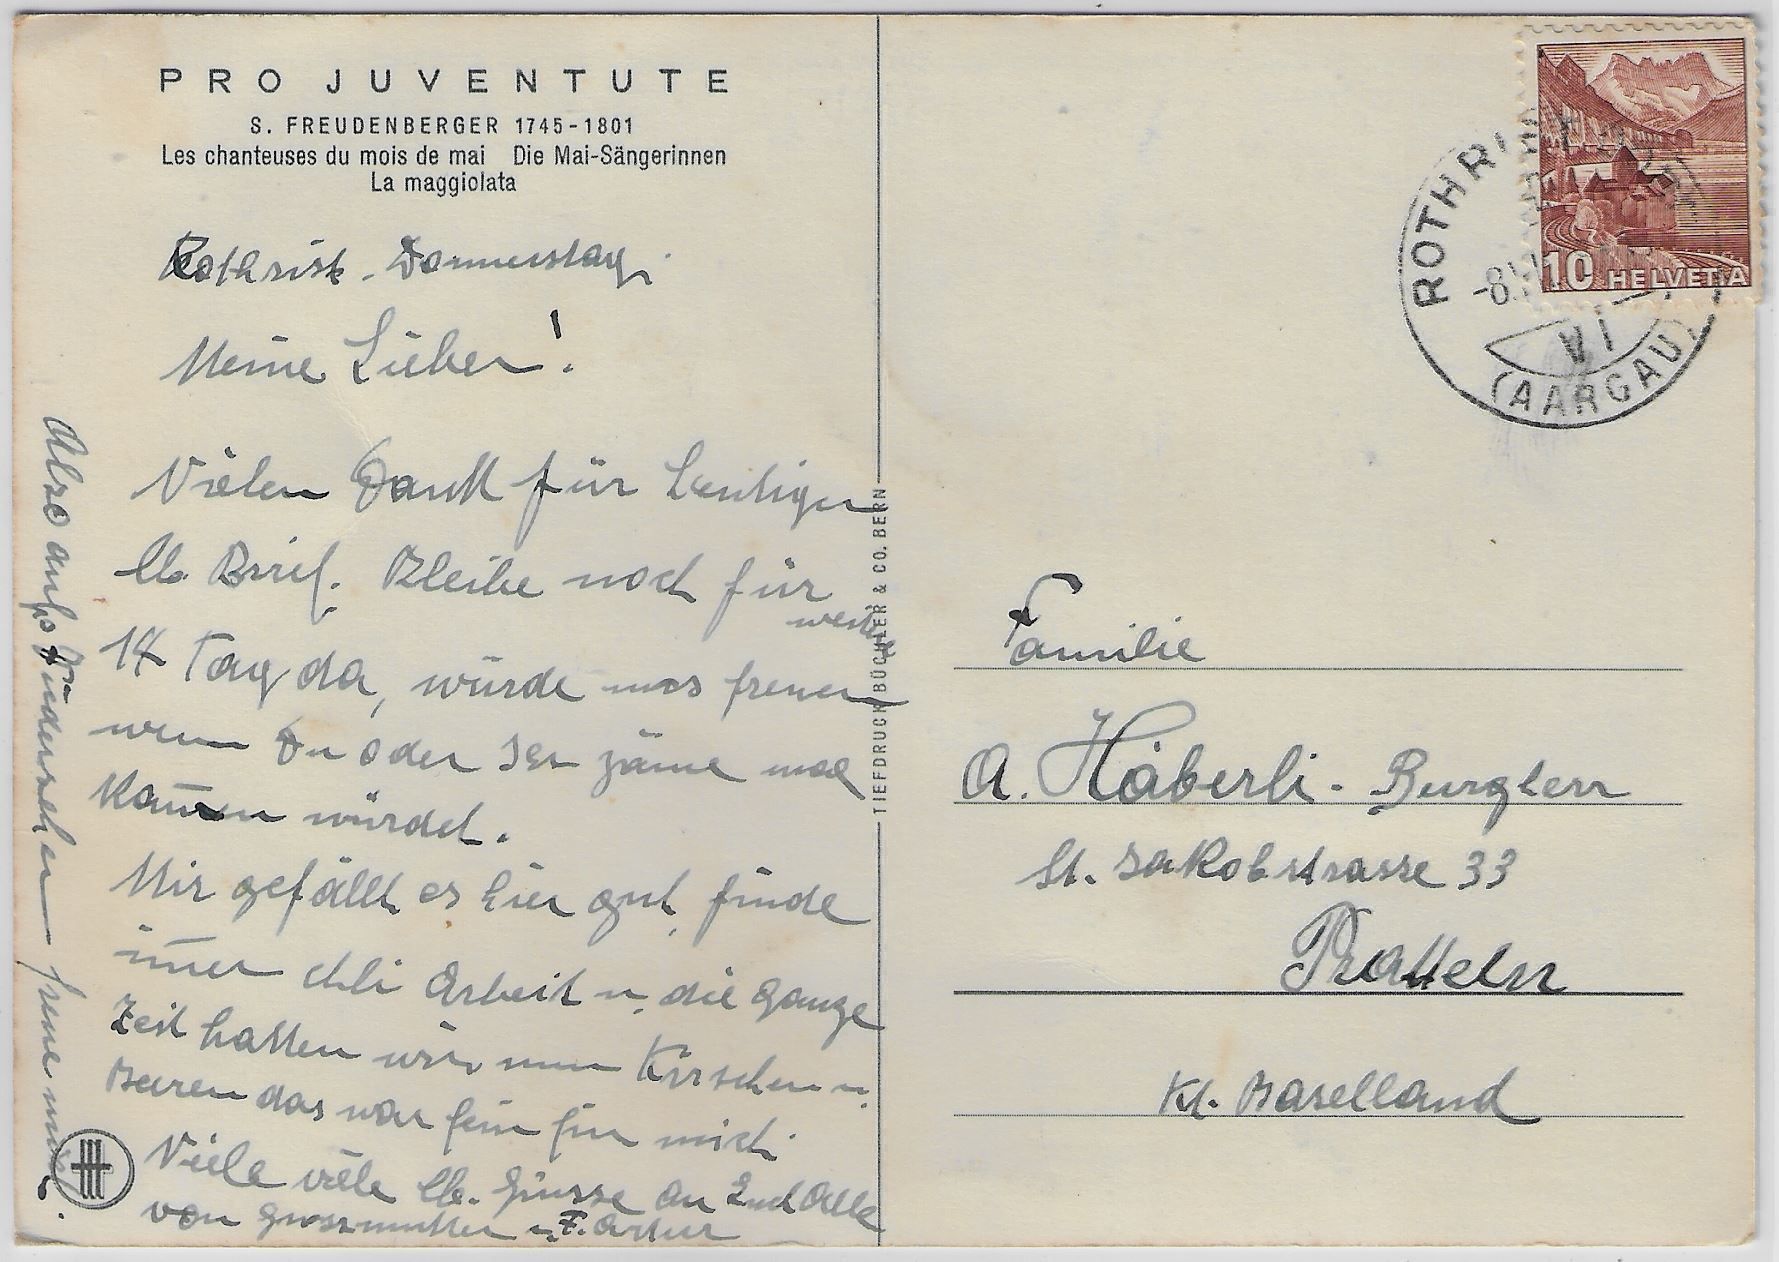 PRO JUVENTUTE
S. FREUDENBERGER 1745-1801
Les chanteuses du mois de mai Die Mai-Sängerinnen
La maggiolata
Rothrist. Donnerstag.
Meine Lieben!
Vielen Dank für heutigen
lb. Brief. Bleibe noch für
weitere
14 Tag da, würde uns freuen
wenn Du oder Ihr zäme mal
kom̄en würdet.
Mir gefällt es hier gut, finde
im̄er chli Arbeit u, die ganze
Zeit hatten wir nun Kirschen u,
Beeren das war fein für mich.
Viele viele lb. Grüsse an Euch Alle
von Grossmutter u, F. Artur
Also aufs Wiedersehen freue mich.
TIEFDRUCK BÜCHLER & CO. BERN
ROTHRIST
-8.
VI
(AARGAU)
10 HELVETIA
Familie
A. Häberli-Burgherr
St. Jakobstrasse 33
Pratteln
Kt. Baselland